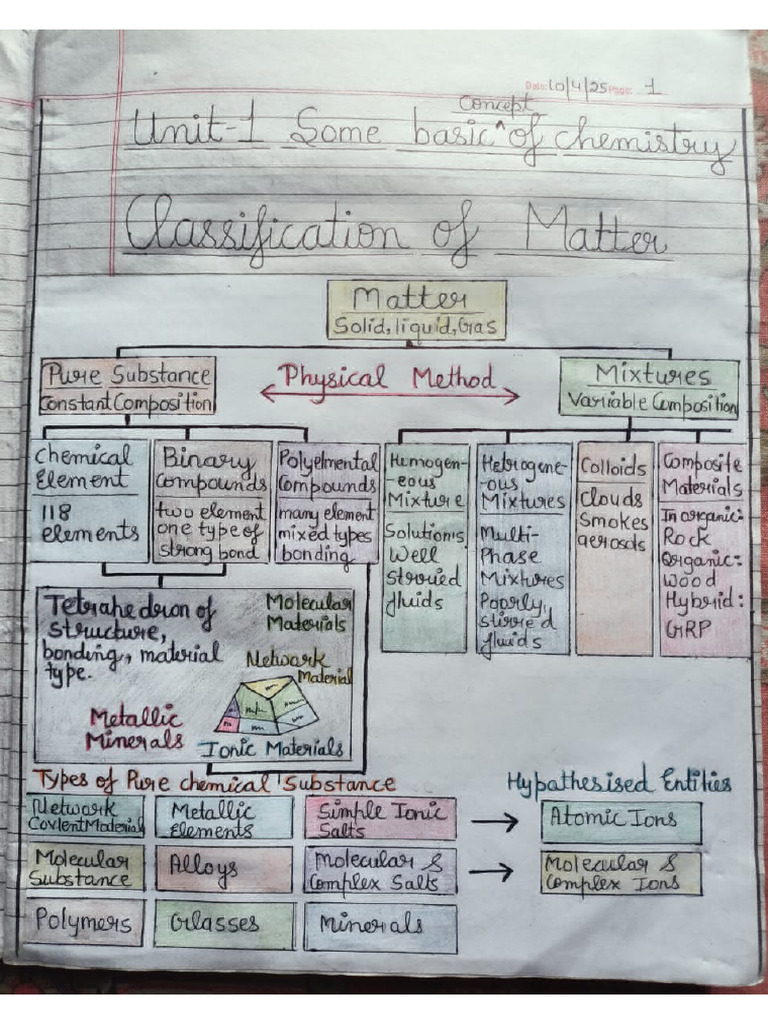 Date: 10/4/25 Page: 1
Concept
Unit-1 Some basic ^ of chemistry
Classification of Matter
Matter
Solid, liquid, Gas
Pure Substance
Constant Composition
Physical Method
Mixtures
Variable Composition
Chemical
Element
118
elements
Binary
Compounds
two element
one type of
strong bond
Polyelmental
Compounds
many element
mixed types
bonding
Homogen-
-eous
Mixture
Solution's
Well
stirried
fluids
Hetrogene-
-ous
Mixtures
Multi-
Phase
Mixtures
Poorly,
stirred
fluids
Colloids
Clouds
Smokes
aerosols
Composite
Materials
Inorganic:
Rock
Organic:
Wood
Hybrid:
GRP
Tetrahedron of
structure,
bonding, material
type.
Molecular
Materials
Netwark
Material
Metallic
Minerals
Ionic Materials
Types of Pure chemical Substance
Hypathesised Entities
Netwark
Covlent Material
Metallic
Elements
Simple Ionic
Salts
Atomic Ions
Molecular
Substance
Alloys
Molecular &
Complex Salts
Molecular &
Complex Ions
Polymers
Glasses
Minerals